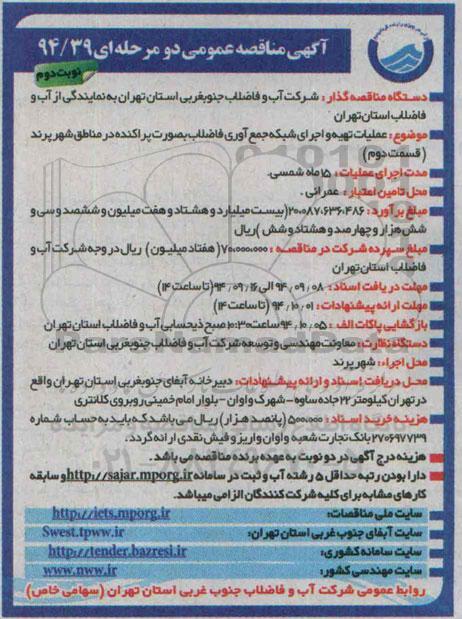 آگهی مناقصه عمومی دو مرحله‌ای ۹۴/۳۹
نوبت دوم
دستگاه مناقصه گذار: شرکت آب و فاضلاب جنوبغربی استان تهران به نمایندگی از آب و
فاضلاب استان تهران
موضوع: عملیات تهیه و اجرای شبکه جمع آوری فاضلاب بصورت پراکنده در مناطق شهر پرند
(قسمت دوم)
مدت اجرای عملیات: ۱۵ ماه شمسی.
محل تامین اعتبار: عمرانی.
مبلغ برآورد: ۲۰،۰۸۷،۶۳۶،۴۸۶ (بیست میلیارد و هشتاد و هفت میلیون و ششصد و سی و
شش هزار و چهارصد و هشتاد و شش) ریال
مبلغ سپرده شرکت در مناقصه: ۷۰،۰۰۰،۰۰۰ (هفتاد میلیون) ریال در وجه شرکت آب و
فاضلاب استان تهران
مهلت دریافت اسناد: ۹۴،۰۹،۰۸ الی ۹۴،۰۹،۱۶ (تا ساعت ۱۴)
مهلت ارائه پیشنهادات: ۹۴،۱۰،۰۱ (تا ساعت ۱۴)
بازگشایی پاکات الف: ۹۴،۱۰،۰۵ ساعت ۱۰:۳۰ صبح ذیحسابی آب و فاضلاب استان تهران
دستگاه نظارت: معاونت مهندسی و توسعه شرکت آب و فاضلاب جنوبغربی استان تهران
محل اجراء: شهر پرند
محل دریافت اسناد و ارائه پیشنهادات: دبیرخانه آبفای جنوبغربی استان تهران واقع
در تهران کیلومتر ۲۲ جاده ساوه - شهرک واوان - بلوار امام خمینی روبروی کلانتری
هزینه خرید اسناد: ۵۰۰،۰۰۰ (پانصد هزار) ریال می باشد که باید به حساب شماره
۲۷۰۶۹۷۷۳۹ بانک تجارت شعبه واوان واریز و فیش نقدی ارائه گردد.
هزینه درج آگهی در دو نوبت به عهده برنده مناقصه می باشد.
دارا بودن رتبه حداقل ۵ رشته آب و ثبت در سامانه http://sajar.mporg.ir و سابقه
کارهای مشابه برای کلیه شرکت کنندگان الزامی میباشد.
سایت ملی مناقصات: http://iets.mporg.ir
سایت آبفای جنوب غربی استان تهران: Swest.tpww.ir
سایت سامانه کشوری: http://tender.bazresi.ir
سایت مهندسی کشور: www.nww.ir
روابط عمومی شرکت آب و فاضلاب جنوب غربی استان تهران (سهامی خاص)